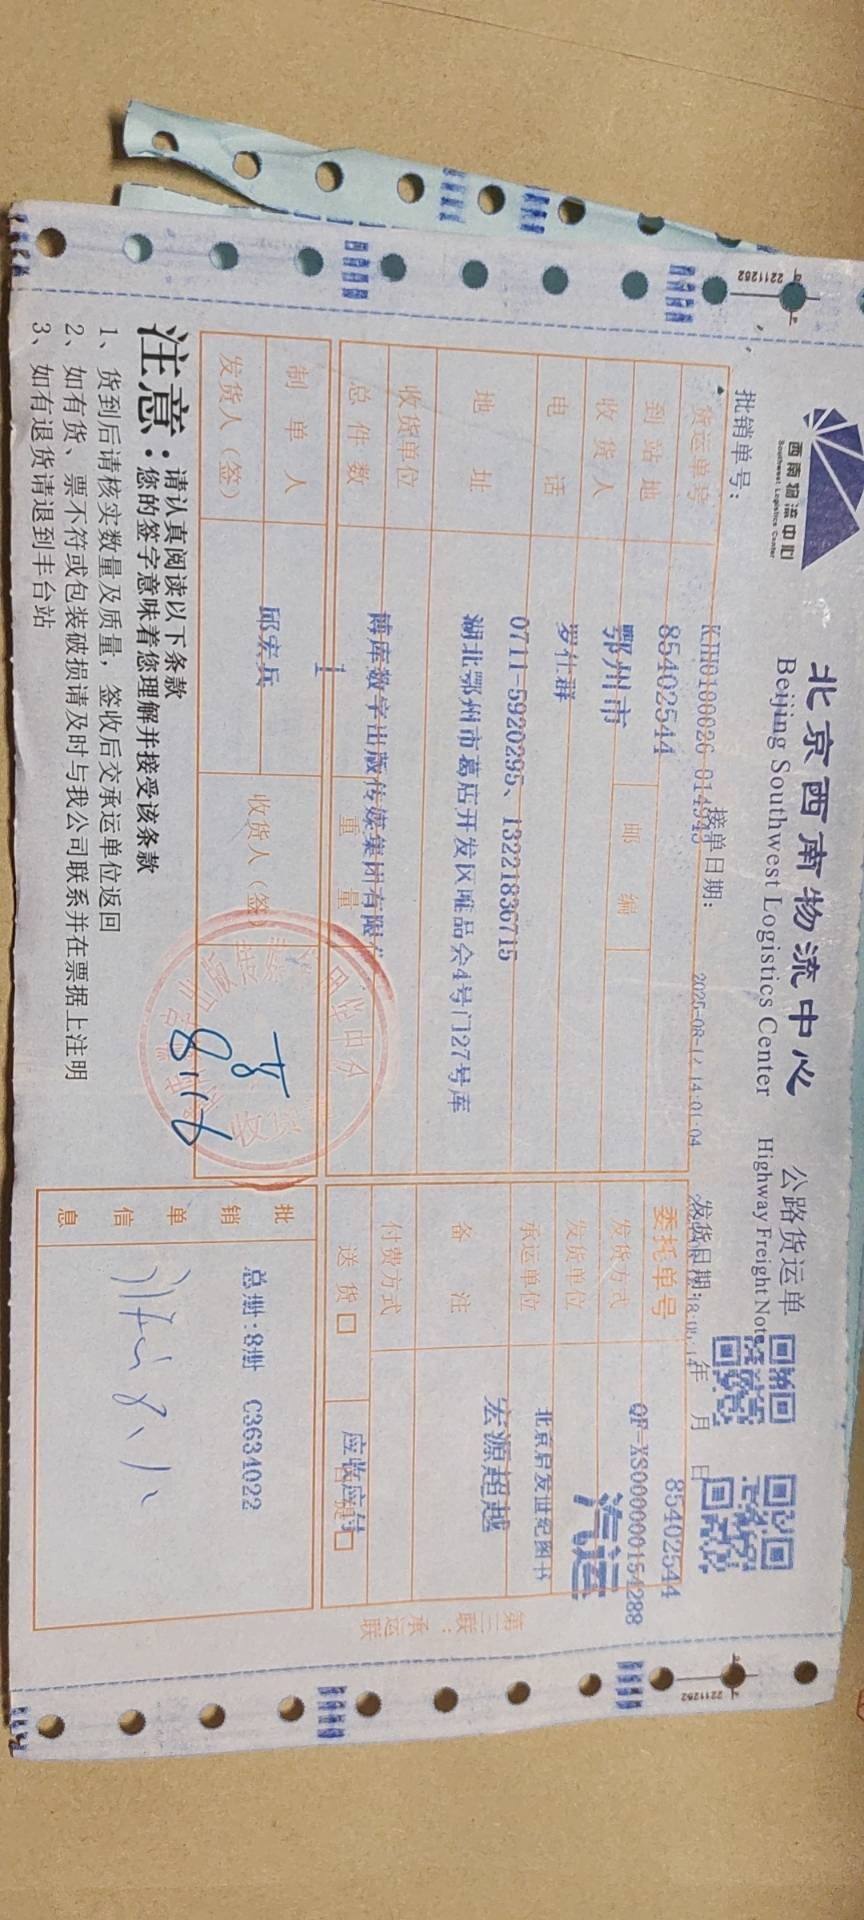 西南物流中心
Southwest Logistics Center
北京西南物流中心 公路货运单
Beijing Southwest Logistics Center Highway Freight Note
批销单号：
KJH0100026-014945 接单日期： 2025-08-12 14:01:04 发货日期： 年 月 日
货运单号 85402544 委托单号 85402544
到站地 鄂州市 邮编 发货方式 QF-XS0000000154288
汽运
收货人 罗仕群 发货单位 北京启发世纪图书
电话 0711-5920295、13221836715 承运单位 宏源超越
地址 湖北鄂州市葛店开发区唯品会4号门27号库 备注
收货单位 博库数字出版传媒集团有限 付费方式
总件数 1 重量 送货□ 应收应付
制单人 邱宏兵 收货人（签）
发货人（签）
收货
8.16
批销单信息
总册：8册 C3634022
第三联：承运联
注意：请认真阅读以下条款
您的签字意味着您理解并接受该条款
1、货到后请核实数量及质量，签收后交承运单位返回
2、如有货、票不符或包装破损请及时与我公司联系并在票据上注明
3、如有退货请退到丰台站
2211252
2211252